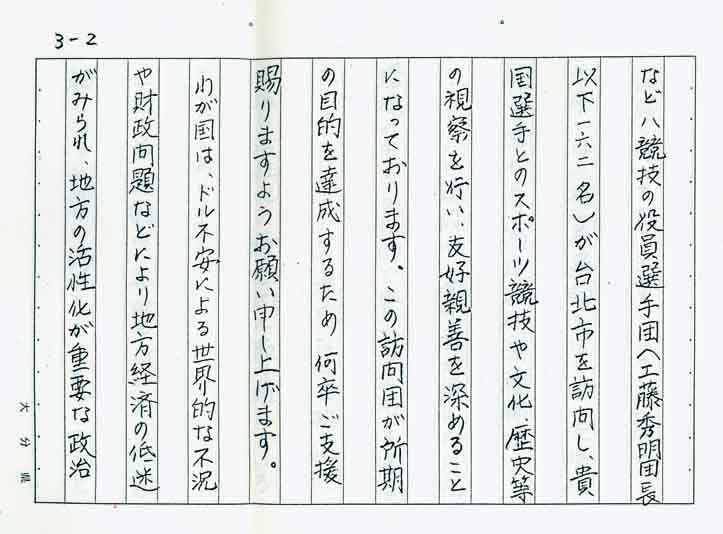 3-2
など八競技の役員選手団(工藤秀明団長
以下一六二名)が台北市を訪問し、貴
国選手とのスポーツ競技や文化、歴史等
の視察を行い、友好親善を深めること
になっております。この訪問団が所期
の目的を達成するため何卒ご支援
賜りますようお願い申し上げます。
わが国は、ドル不安による世界的な不況
や財政問題などにより地方経済の低迷
がみられ、地方の活性化が重要な政治
大分県